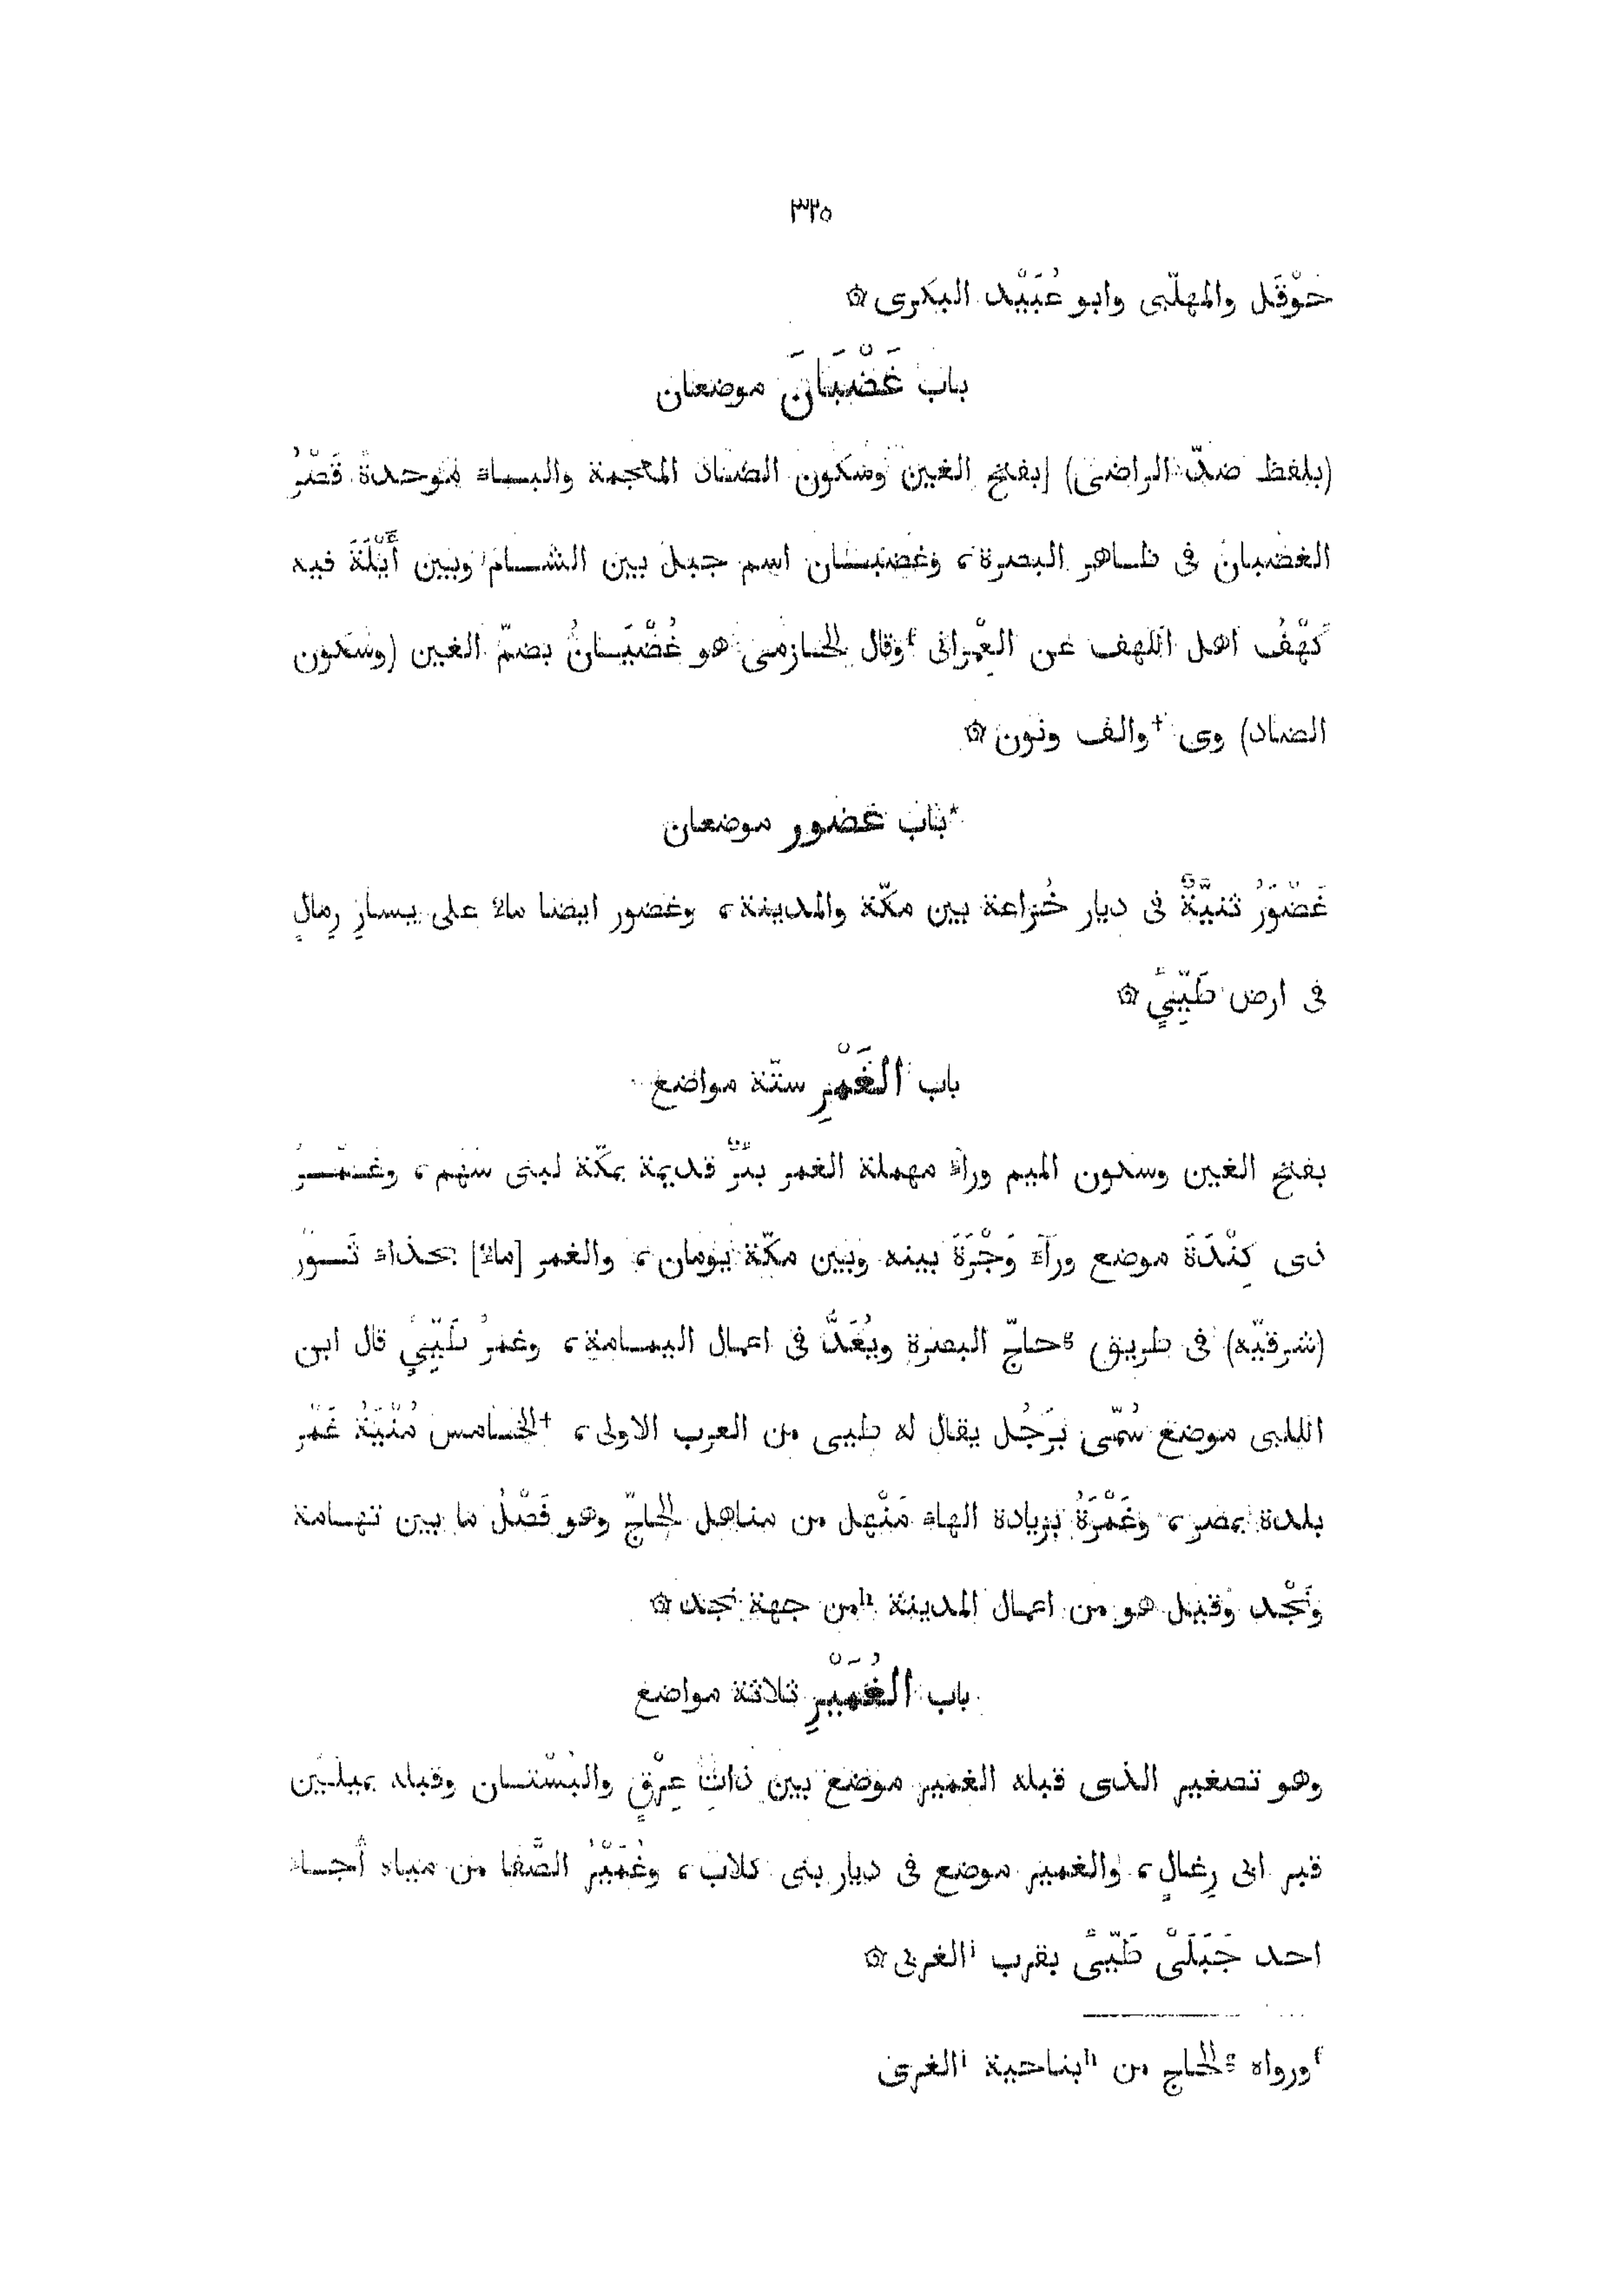 ٣٢٥
حَوْقَل والمهلّبى وابو عُبَيْد البكرى ۞
باب غَضْبَانَ موضعان
(بلفظ ضدّ الراضى) [بفتح الغين وسكون الضاد المعجمة والباء موحدة قَصْرُ
الغضبان فى ظاهر البصرة، وغضبان اسم جبل بين الشام وبين أَيْلَةَ فيه
كَهْفُ اهل الكهف عن العِمْرانى fوقال الحازمى هو غُضْيَانُ بضمّ الغين (وسكون
الضاد) وى †والف ونون ۞
*باب غضور موضعان
غَضْوَرُ ثنيَّةٌ فى ديار خُزاعة بين مكّة والمدينة، وغضور ايضا ماء على يسارِ رِمالٍ
فى ارض طَيِّئٍ ۞
باب الغَمْرِ ستّة مواضع
بفتح الغين وسكون الميم وراء مهملة الغمر بئرٌ قديمة بمكّة لبنى سَهْم، وغَمْرُ
ذى كِنْدَةَ موضع ورآءَ وَجْرَةَ بينه وبين مكّة يومان، والغمر [ماء] بحذاء تَوُز
(شرقيّه) فى طريق gحاجّ البصرة ويُعَدُّ فى اعمال اليمامة، وغمرُ طَيِّئٍ قال ابن
الكلبى موضع سُمّى بَرَجُل يقال له طيى من العرب الاولى، †الخامس مُنْيَةُ غَمْر
بلدة بمصر، وغَمْرَةُ بزيادة الهاء مَنْهل من مناهل الحاجّ وهو فَصْلُ ما بين تهامة
ونَجْد وقيل هو من اعمال المدينة hمن جهة نجد ۞
باب الغُمَيْرِ ثلاثة مواضع
وهو تصغير الذى قبله الغمير موضع بين ذاتِ عِرْقٍ والبُسْتان وقبله بميلين
قبر ابى رِغالٍ، والغمير موضع فى ديار بنى كلاب، وغُمَيْرُ الصَّفا من مياه أَجَاء
احد جَبَلَىْ طَيّئ بقرب iالغربى ۞
fورواه gالحاج من hبناحية iالغرى